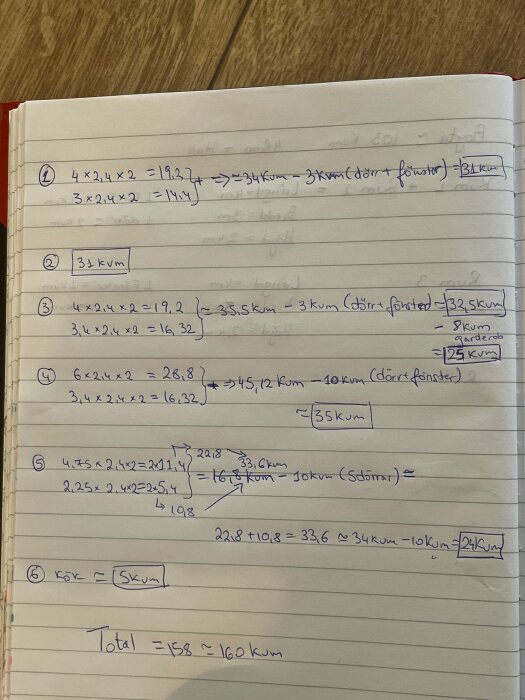 ① 4 × 2,4 × 2 = 19,2 } + => ≈ 34 kvm - 3 kvm (dörr + fönster) = 31 kvm
3 × 2,4 × 2 = 14,4
② 31 kvm
③ 4 × 2,4 × 2 = 19,2 } ≈ 35,5 kvm - 3 kvm (dörr + fönster) = 32,5 kvm
3,4 × 2,4 × 2 = 16,32
- 8 kvm
garderob
= 25 kvm
④ 6 × 2,4 × 2 = 28,8 } => 45,12 kvm - 10 kvm (dörr + fönster)
3,4 × 2,4 × 2 = 16,32
≈ 35 kvm
22,8
33,6 kvm
⑤ 4,75 × 2,4×2 = 2×11,4 } = 16,8 kvm - 10 kvm (5 dörrar) ≈
2,25 × 2,4×2 = 2×5,4
↳ 10,8
22,8 + 10,8 = 33,6 ≈ 34 kvm - 10 kvm = 24 kvm
⑥ kök ≈ 5 kvm
Total = 158 ≈ 160 kvm